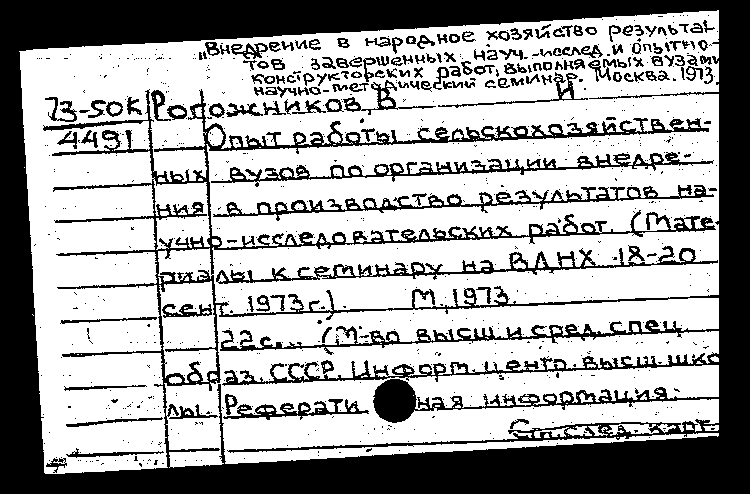 „Внедрение в народное хозяйство результа-
тов завершенных науч.-исслед. и опытно-
конструкторских работ, выполняемых вузами
научно-методический семинар. Москва. 1973.
73-50К Рогожников, В. И.
4491 Опыт работы сельскохозяйствен-
ных вузов по организации внедре-
ния в производство результатов на-
учно-исследовательских работ. (Мате-
риалы к семинару на ВДНХ 18-20
сент. 1973г.). М, 1973.
22с... (М-во высш. и сред. спец.
образ. СССР. Информ. центр. высш. шко
лы. Реферати ная информация:
См. след. карт.